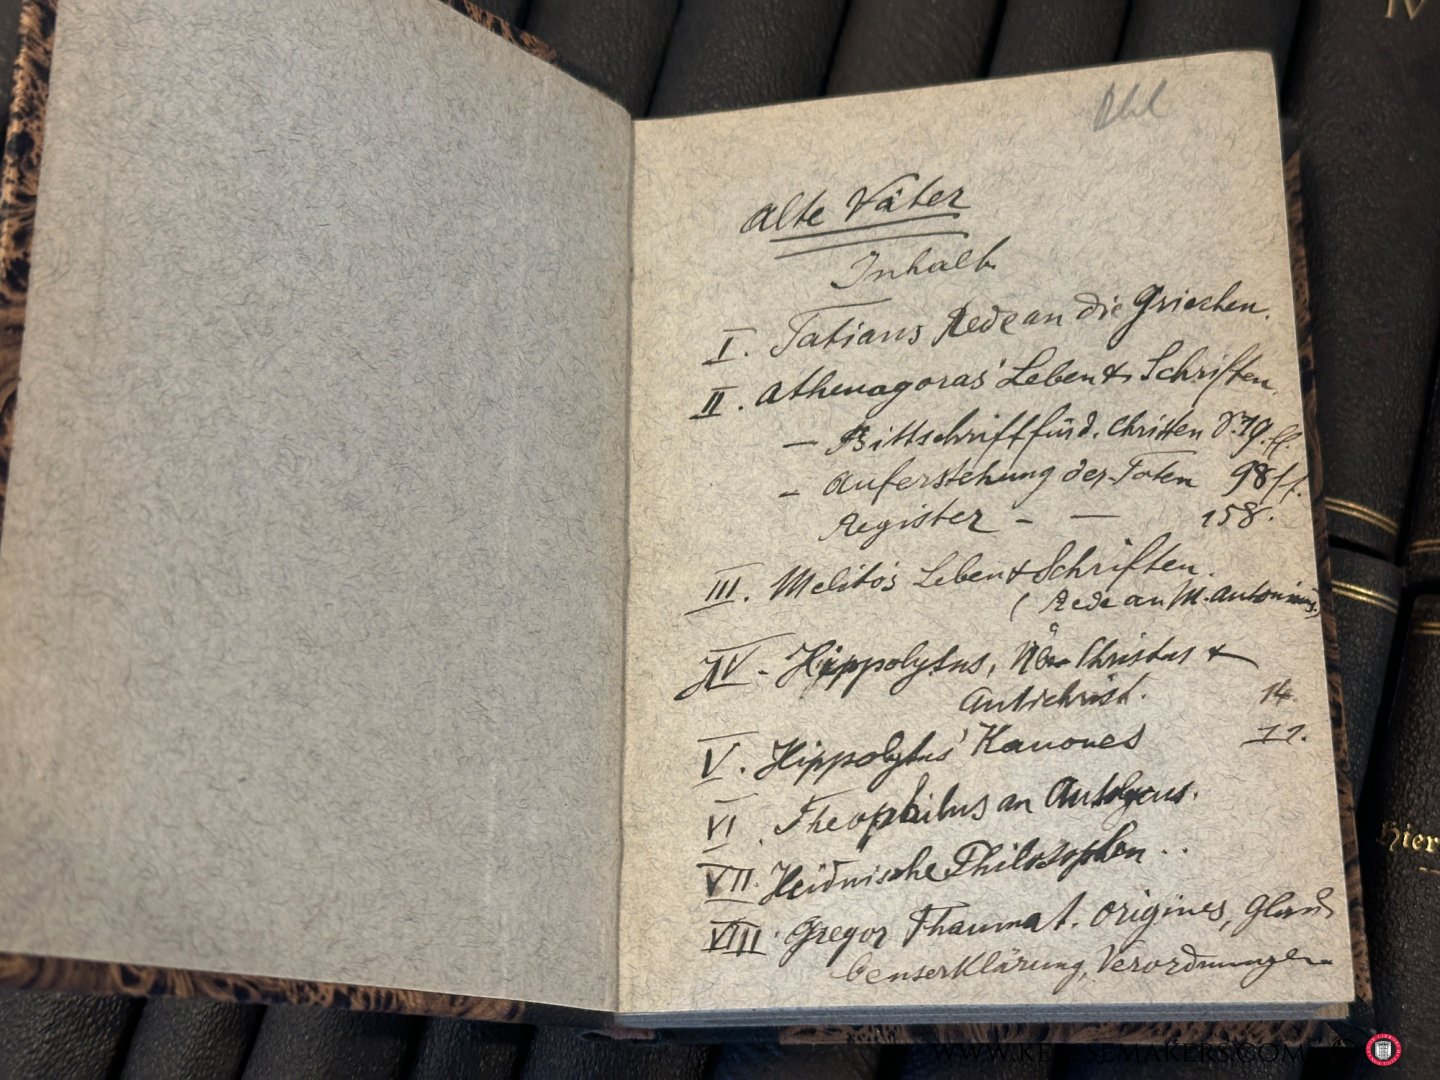 IV
Alte Väter
Inhalt
I. Tatians Rede an die Griechen.
II. Athenagoras' Leben & Schriften.
— Bittschrift für d. Christen S. 19 ff.
— Auferstehung der Toten 98 ff.
Register - — 158.
III. Melito's Leben & Schriften.
( Rede an M. Antoninus)
IV. Hippolytus, Christus &
Antichrist. 14.
V. Hippolytus' Kanones
VI Theophilus an Autolycus.
VII. Heidnische Philosophen..
VIII. Gregor Thaumat. Origines, Glau
benserklärung, Verordnungen
Hier
WWW.KETTERMAKERS.COM